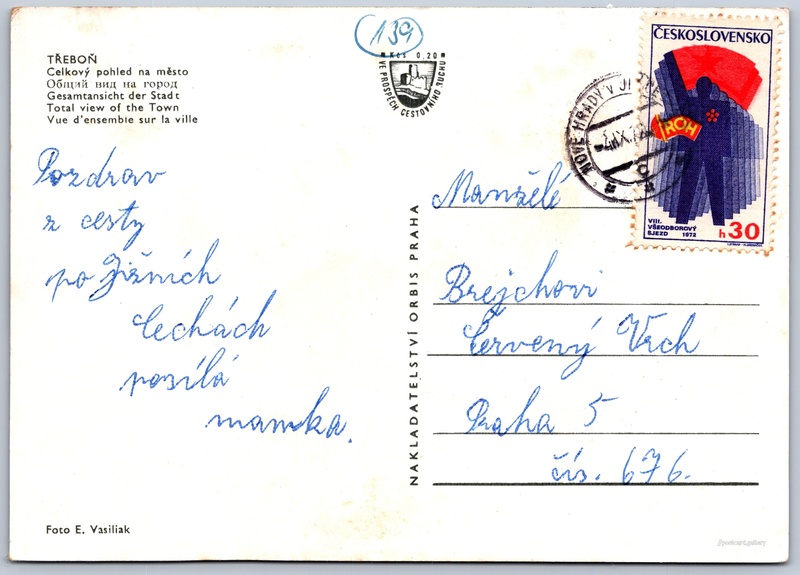 TŘEBOŇ
Celkový pohled na město
Общий вид на город
Gesamtansicht der Stadt
Total view of the Town
Vue d'ensemble sur la ville
139
Kčs 0,20
VE PROSPĚCH CESTOVNÍHO RUCHU
ČESKOSLOVENSKO
ROH
VIII.
VŠEODBOROVÝ
SJEZD 1972
h 30
NOVÉ HRADY V
Pozdrav
z cesty
po Jižních
Čechách
posílá
mamka.
NAKLADATELSTVÍ ORBIS PRAHA
Manželé
Brejchovi
Červený Vrch
Praha 5
čís. 676.
Foto E. Vasiliak